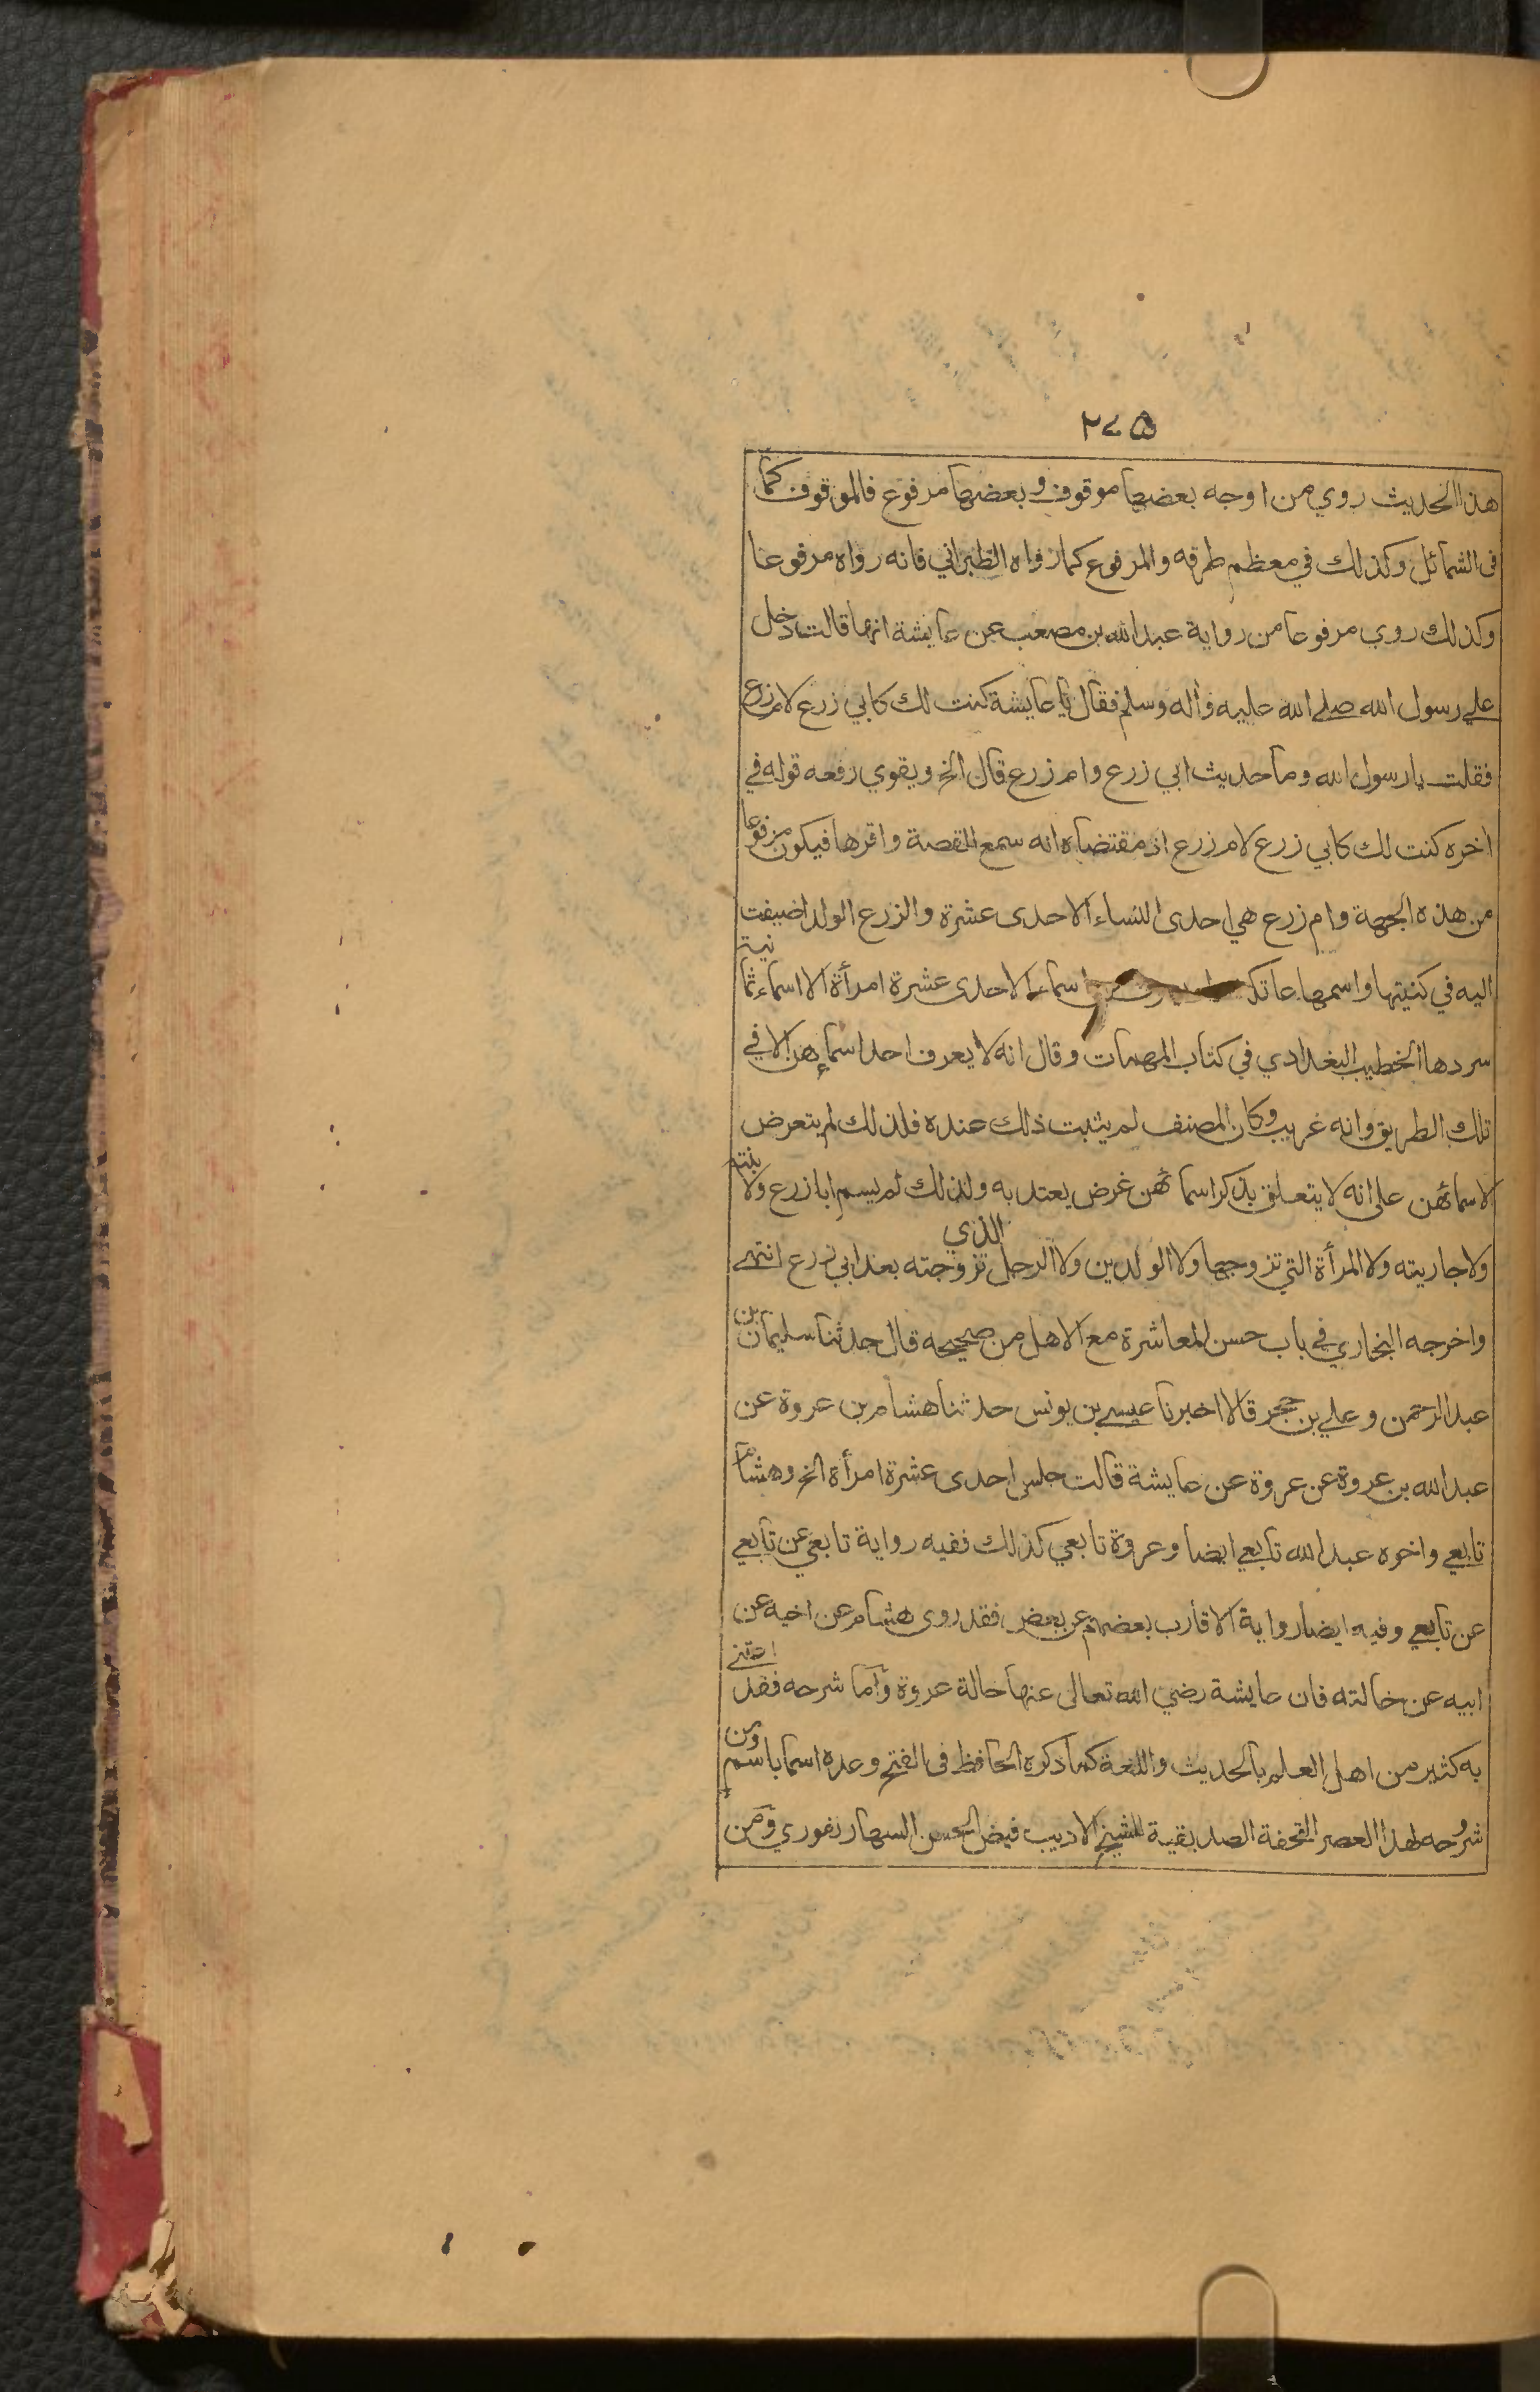 ٢٧٥
هذا الحديث روي من اوجه بعضها موقوف وبعضها مرفوع فالموقوف كما
فى الشمائل وكذلك في معظم طرقه والمرفوع كما رواه الطبراني فانه رواه مرفوعا
وكذلك روى مرفوعا من رواية عبد الله بن مصعب عن عايشة انها قالت دخل
علي رسول الله صلے الله عليه وآله وسلم فقال يا عايشة كنت لك كابي زرع لام زرع
فقلت يا رسول الله وما حديث ابي زرع وام زرع قال الخ ويقوي رفعه قوله في
اخره كنت لك كابي زرع لام زرع اذ مقتضاه انه سمع القصة واقرها فيكون مرفوعا
من هذه الجهة وام زرع هي احدى النساء الاحدى عشرة والزرع الولد اضيفت
اليه في كنيتها واسمها عاتكة اسماء الاحدى عشرة امرأة الا اسماء ثمانية
سردها الخطيب البغدادي في كتاب المهمات وقال انه لا يعرف احد اسمائهن الا في
تلك الطريق وانه غريب وكان المصنف لم يثبت ذلك عنده فلذلك لم يتعرض
لاسمائهن على انه لا يتعلق بذكر اسمائهن غرض يعتد به ولذلك لم يسم ابا زرع ولا بنته
ولا جاريته ولا المرأة التي تزوجها ولا الولدين ولا الرجل الذي تزوجته بعد ابي زرع انتهے
واخرجه البخاري في باب حسن المعاشرة مع الاهل من صحيحه قال حدثنا سليمان بن
عبد الرحمن وعلي بن حجر قالا اخبرنا عيسے بن يونس حدثنا هشام بن عروة عن
عبد الله بن عروة عن عروة عن عايشة قالت جلس احدى عشرة امرأة الخ وهشام
تابعي واخوه عبد الله تابعي ايضا وعروة تابعي كذلك ففيه رواية تابعي عن تابعي
عن تابعي وفيه ايضا رواية الاقارب بعضهم عن بعض فقد روى هشام عن اخيه عن
ابيه عن خالته فان عايشة رضي الله تعالى عنها خالة عروة وأما شرحه فقد اعتنے
به كثير من اهل العلم بالحديث واللغة كما ذكره الحافظ فى الفتح وعده اسما باسم ومن
شروحه لهذا العصر التحفة الصديقية للشيخ الاديب فيض الحسن السهارنفوري ومن